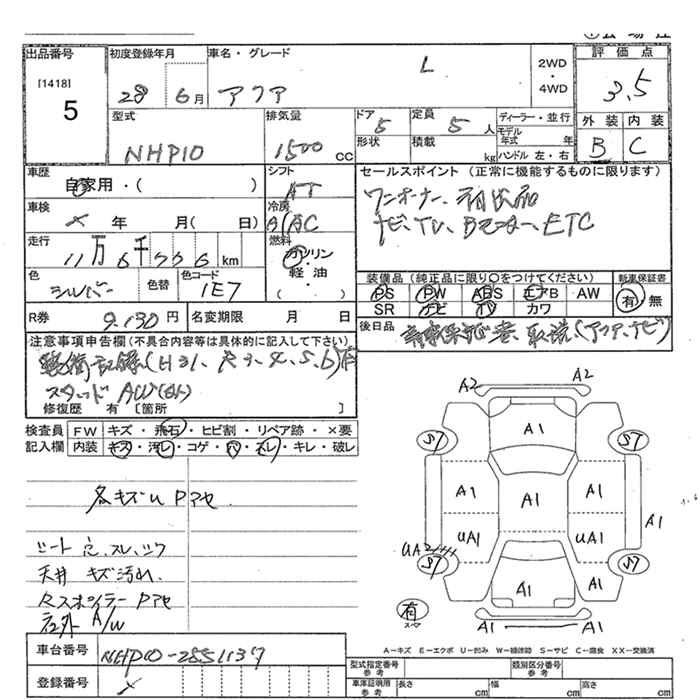 出品番号 初度登録年月 車名・グレード 2WD・4WD 評価点
[1418]
5 28 6月 アクア L 3.5
型式 排気量 ドア 5 定員 5人 ディーラー・並行 外装 内装
形状 積載 kg モデル年式 年 ハンドル 左・右
NHP10 1500cc B C
車歴 シフト セールスポイント（正常に機能するものに限ります）
自家用・( ) AT ワンオーナー
車検 冷房 ナビ、TV、Bモニター、ETC
× 年 月( 日) AAC
走行 燃料 装備品（純正品に限り○をつけてください） 新車保証書
11万6千 km ガソリン PS PW ABS エアB AW 有・無
軽油 SR ナビ TV カワ
色 色替 色コード ( )
シルバー 1E7
R券 9,130円 名変期限 月 日 後日品 保証書、取説(アクア、ナビ)
注意事項申告欄(不具合内容等は具体的に記入して下さい)
記録(H31、R3、4、5、6)
スタッド AW
修復歴 有 [箇所 ]
検査員 FW キズ・飛石・ヒビ割・リペア跡・×要
記入欄 内装 キズ・汚レ・コゲ・穴・スレ・キレ・破レ
各キズU Pアセ
シート 穴、スレ、シワ
天井 キズ汚れ
Rスポイラー Pアセ
社外 A/W
A2 A2
A1
S7 S7
A1 A1 A1 A1
UA1 UA1
UA2
S7 A1 A1 S7
有
スペア
A1 A1
A－キズ E－エクボ U－凹み W－補修跡 S－サビ C－腐食 XX－交換済
車台番号 NHP10-2551137
登録番号 ×
型式指定番号 参考 類別区分番号 参考
車庫証明用 参考 長さ cm 幅 cm 高さ cm